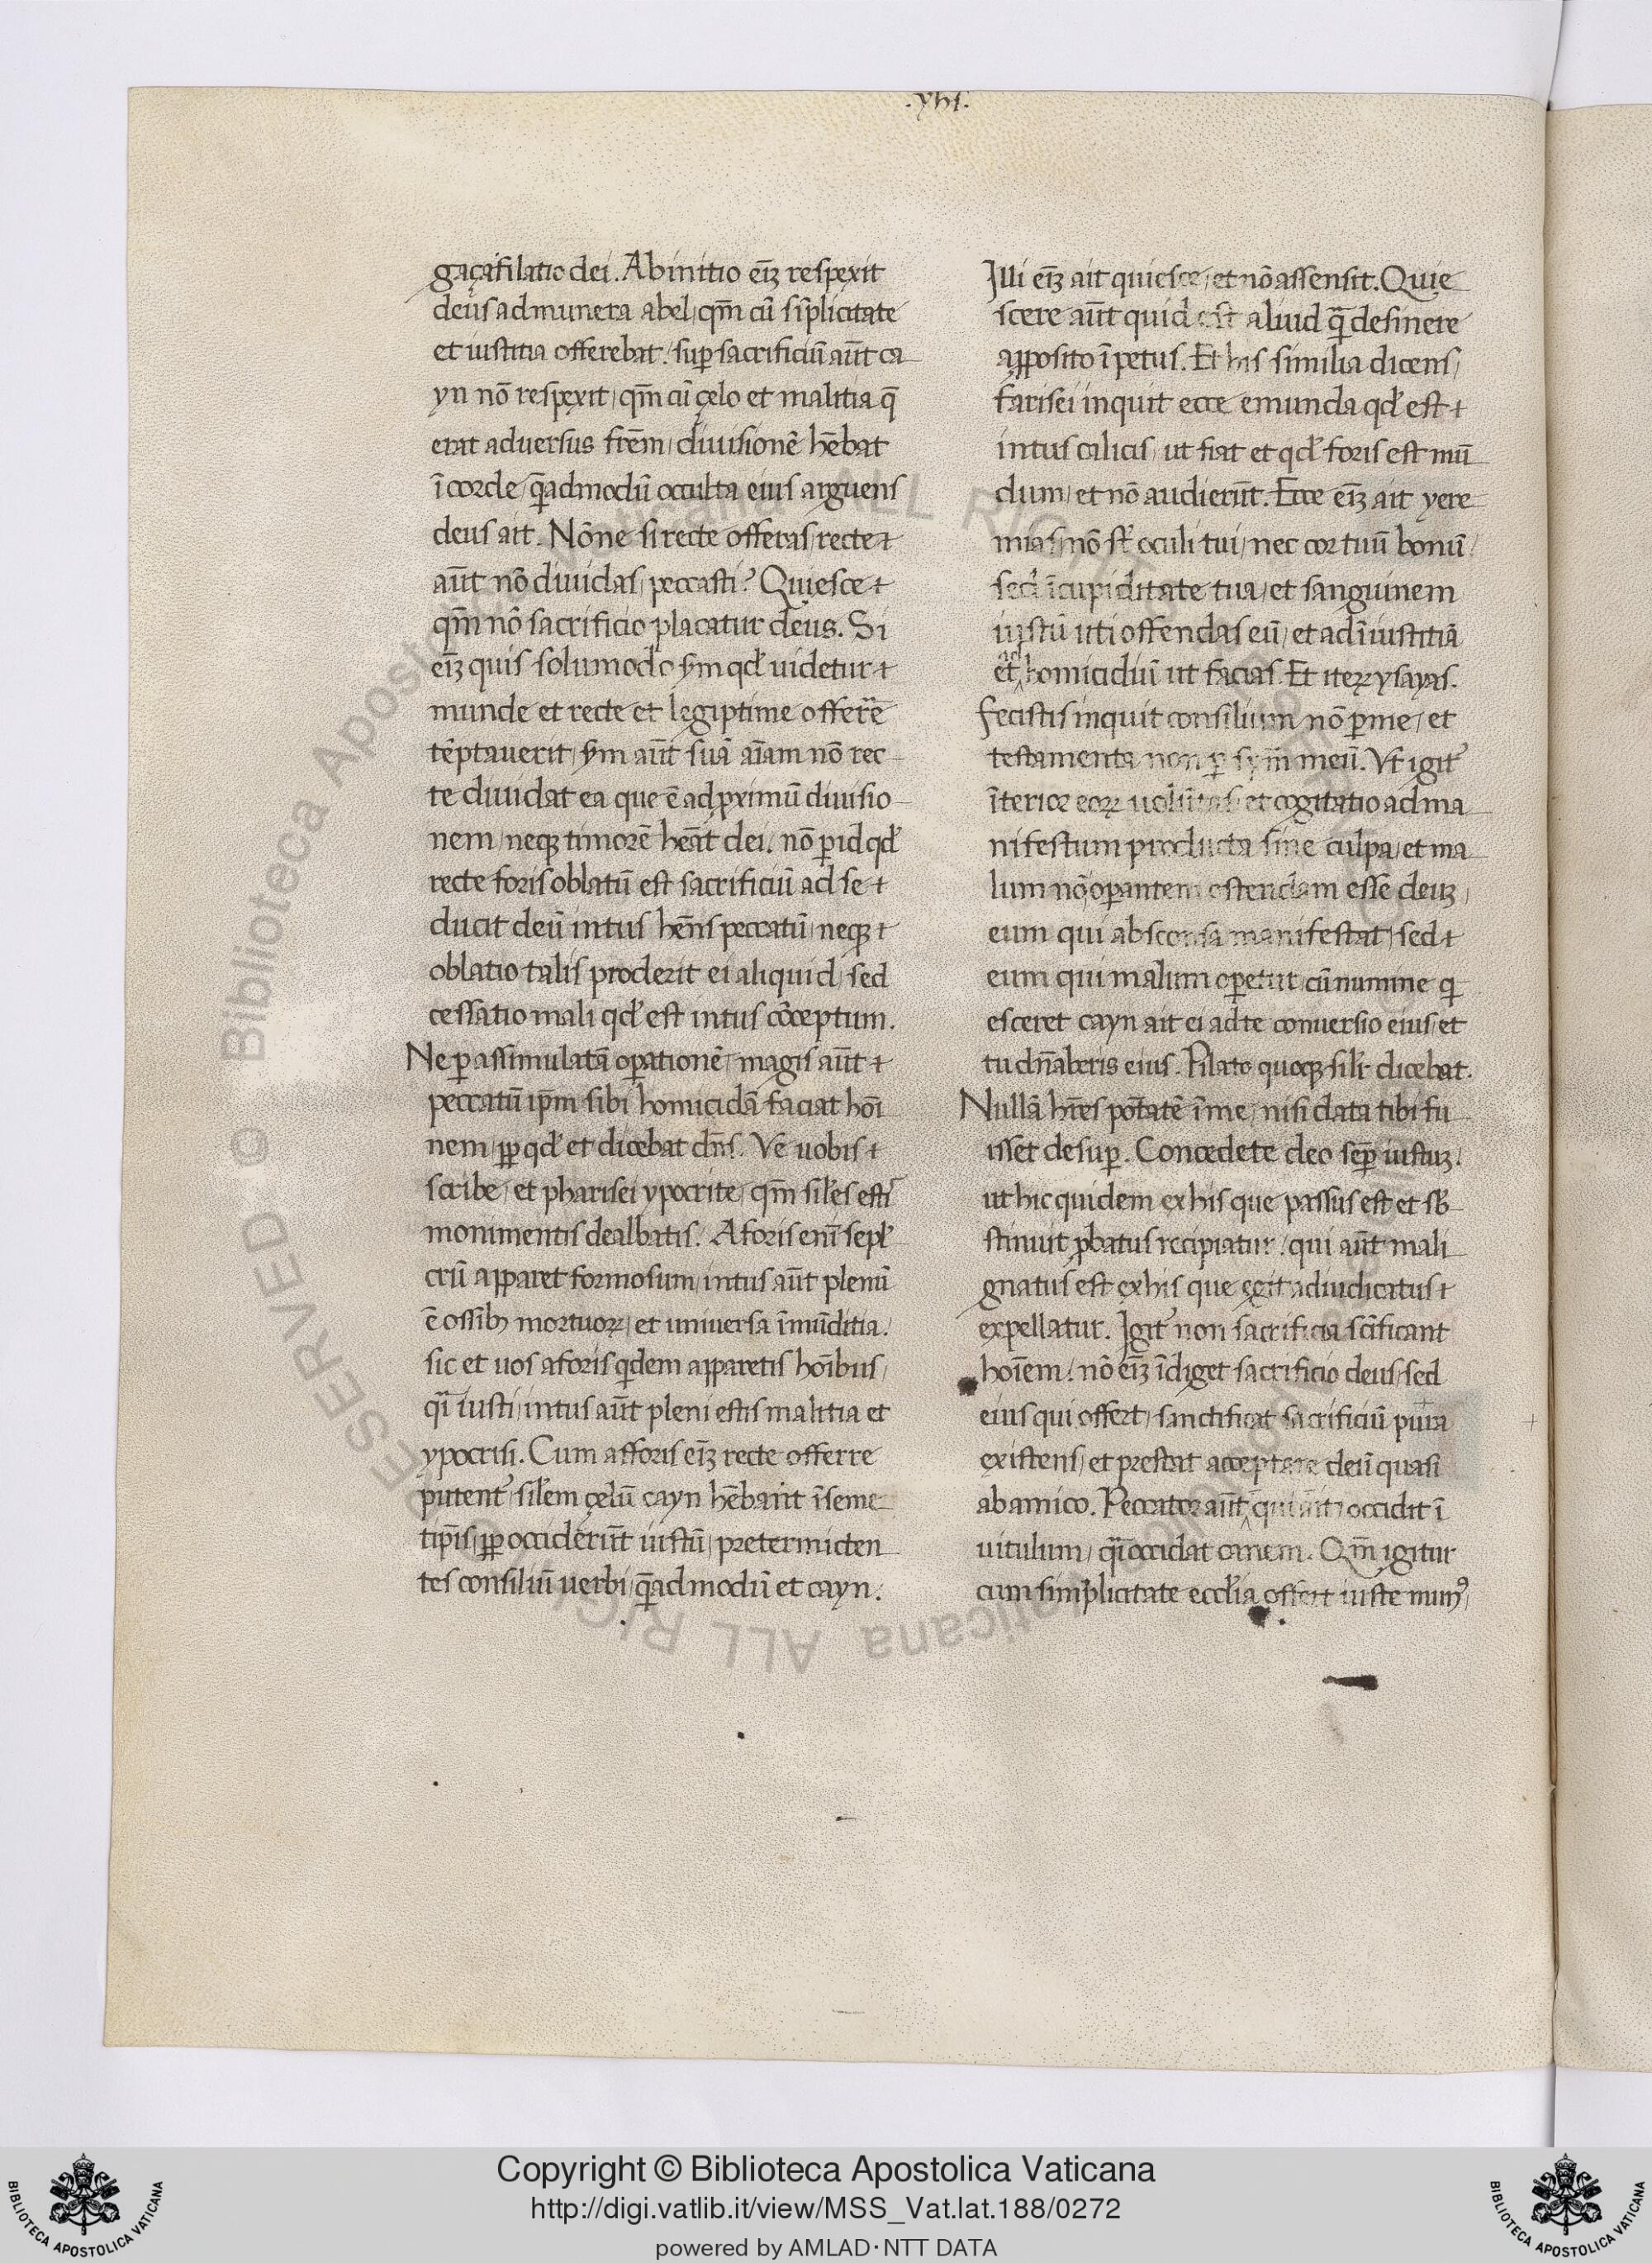 .yhs.
gaçafilatio dei. Abinitio eiʒ̄ respexit
deus ad munera abel, qm̄ cū sīplicitate
et iustitia offerebat. sup̱ sacrificiū aūt ca
yn nō respexit, qm̄ cū çelo et malitia q̄
erat adversus frēm, divisionē hēbat
ī corde, q̄admodū occulta eius arguens
deus ait. Nōne si recte offeras, recte
aūt nō dividas, peccasti? Quiesce
qm̄ nō sacrificio placatur deus. Si
eiʒ̄ quis solumodo sm̄ qd' videtur
munde et recte et legiptime offerre
tēptaverit, sm̄ aūt suā aīam nō rec
te dividat ea que ē ad ꝓximū divisio
nem, neqȝ timorē heāt dei. nō ꝑ id qd'
recte foris oblatū est sacrificiū ad se
ducit deū intus hēns peccatū, neqȝ
oblatio talis proderit ei aliquid, sed
cessatio mali qd' est intus cōceptum.
Ne ꝑ assimulatā oꝑationē, magis aūt
peccatū ip̄m sibi homicidā faciat hoī
nem, ꝓp qd' et dicebat dn̄s. Ve vobis
scribe, et pharisei ypocrite, qm̄ siles esti
monimentis dealbatis. A foris enī sepl'
crū apparet formosum, intus aūt plenū
ē ossibȝ mortuoꝝ, et universa īmūditia.
sic et vos a foris qdem apparetis hoībus,
qī iusti, intus aūt pleni estis malitia et
ypocrisi. Cum afforis eiʒ̄ recte offerre
putent' silem çelū cayn hēbant ī seme
tip̄is, ꝓp occiderūt iustū, pretermicten
tes consiliū verbi, q̄admodū et cayn.
Illi eiʒ̄ ait quiesce, et nō assensit. Quie
scere aūt quid est aliud q̄ desinere
apposito īpetus. Et his similia dicens,
farisei inquit cece emunda qd' est
intus calicis, ut fiat et qd' foris est mū
dum, et nō audierūt. Ecce eiʒ̄ ait yere
mias, nō st' oculi tui, nec cor tuū bonū
sed ī cupiditate tua, et sanguinem
iustū uti offendas eū, et ad iniustitiā
et ad homicidiū ut facias. Et iteꝝ ysayas.
Fecistis inquit consilium nō ꝑ me, et
testamenta non ꝑ sp̄m meū. Ut igit'
īterior eoꝝ volūtas et cogitatio ad ma
nifestum producta sine culpa, et ma
lum nō oꝑantem ostendam esse deuʒ,
eum qui absconsa manifestat, sed
eum qui malum oꝑetur, cū numine q
esceret cayn ait ei ad te conversio eius, et
tu dn̄aberis eius. Pilato quoqȝ silr dicebat.
Nullā hr̄es potatē ī me, nisi data tibi fu
isset desuꝑ. Concedete deo seꝑ iustuʒ.
ut hic quidem ex his que passus est et sb
stinuit ꝓbatus recipiatur, qui aūt mali
gnatus est ex his que egit adiudicatus
expellatur. Igit' non sacrificia scīficant
hoīem, nō eiʒ̄ īdiget sacrificio deus, sed
eius qui offert, sanctificat sacrificiū pura
existens, et prestat acceptare deū quasi
ab amico. Peccator aūt, qui mīt occidit ī
vitulum, qī occidat canem. Qm̄ igitur
cum simplicitate ecclīa offert iuste mun',
Copyright © Biblioteca Apostolica Vaticana
http://digi.vatlib.it/view/MSS_Vat.lat.188/0272
powered by AMLAD·NTT DATA